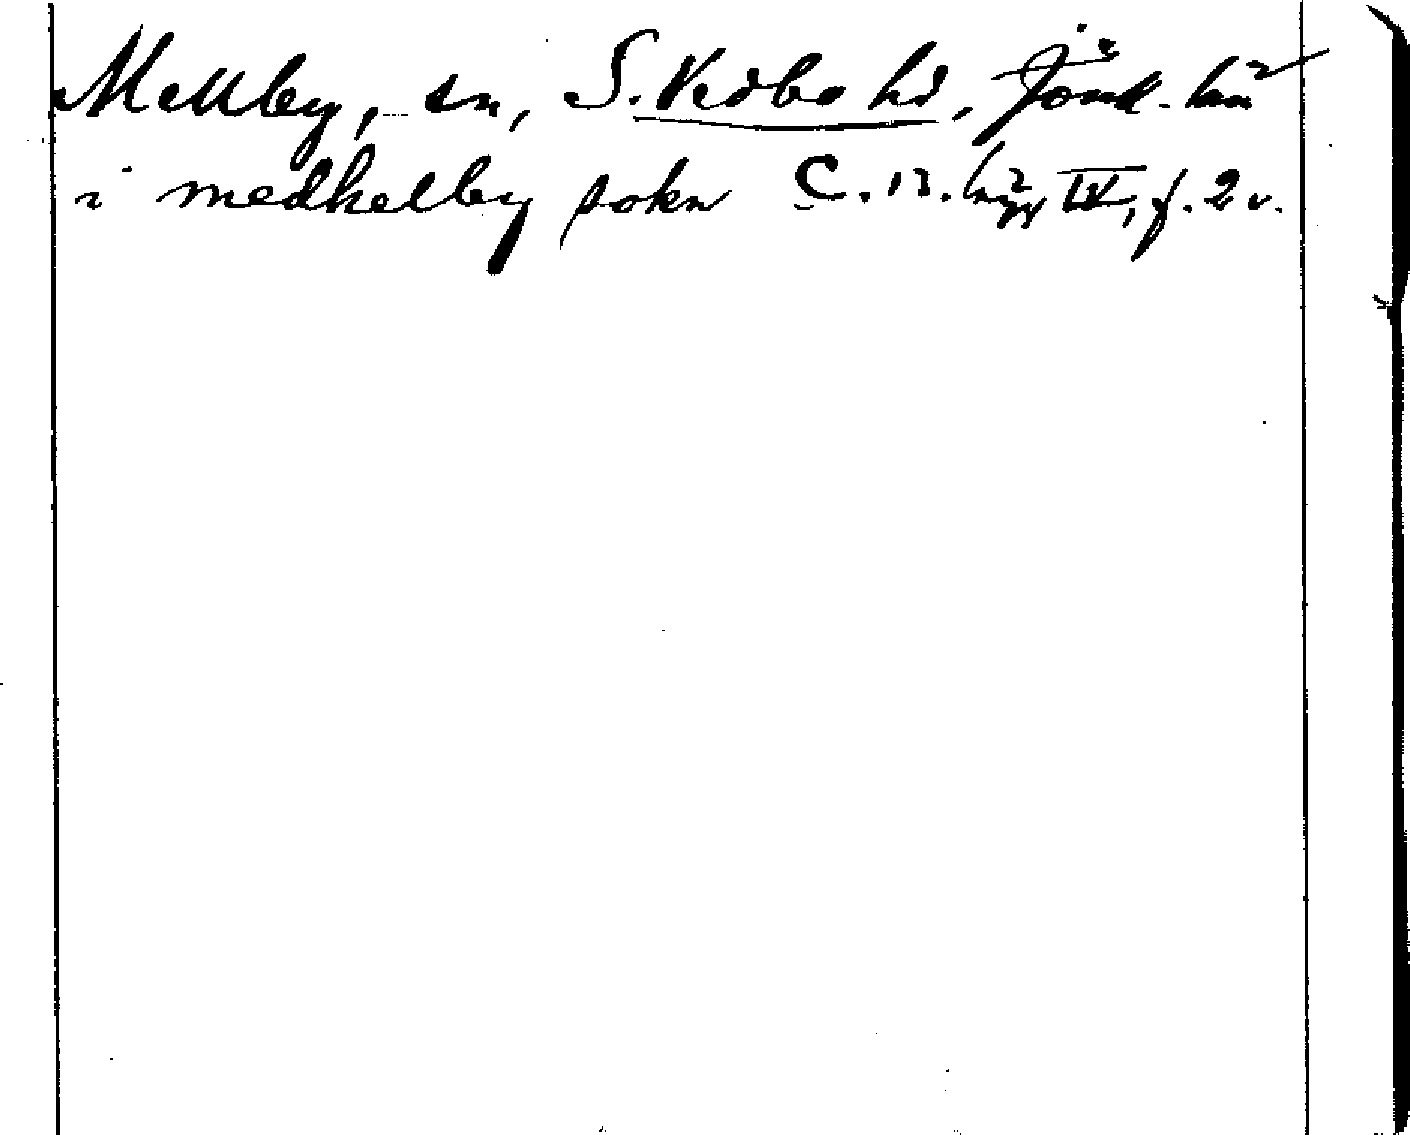 Mellby, sn, S. Vedbo hd, Jönk. län
i medhelby sokn C. 12. IV, f. 2 v.